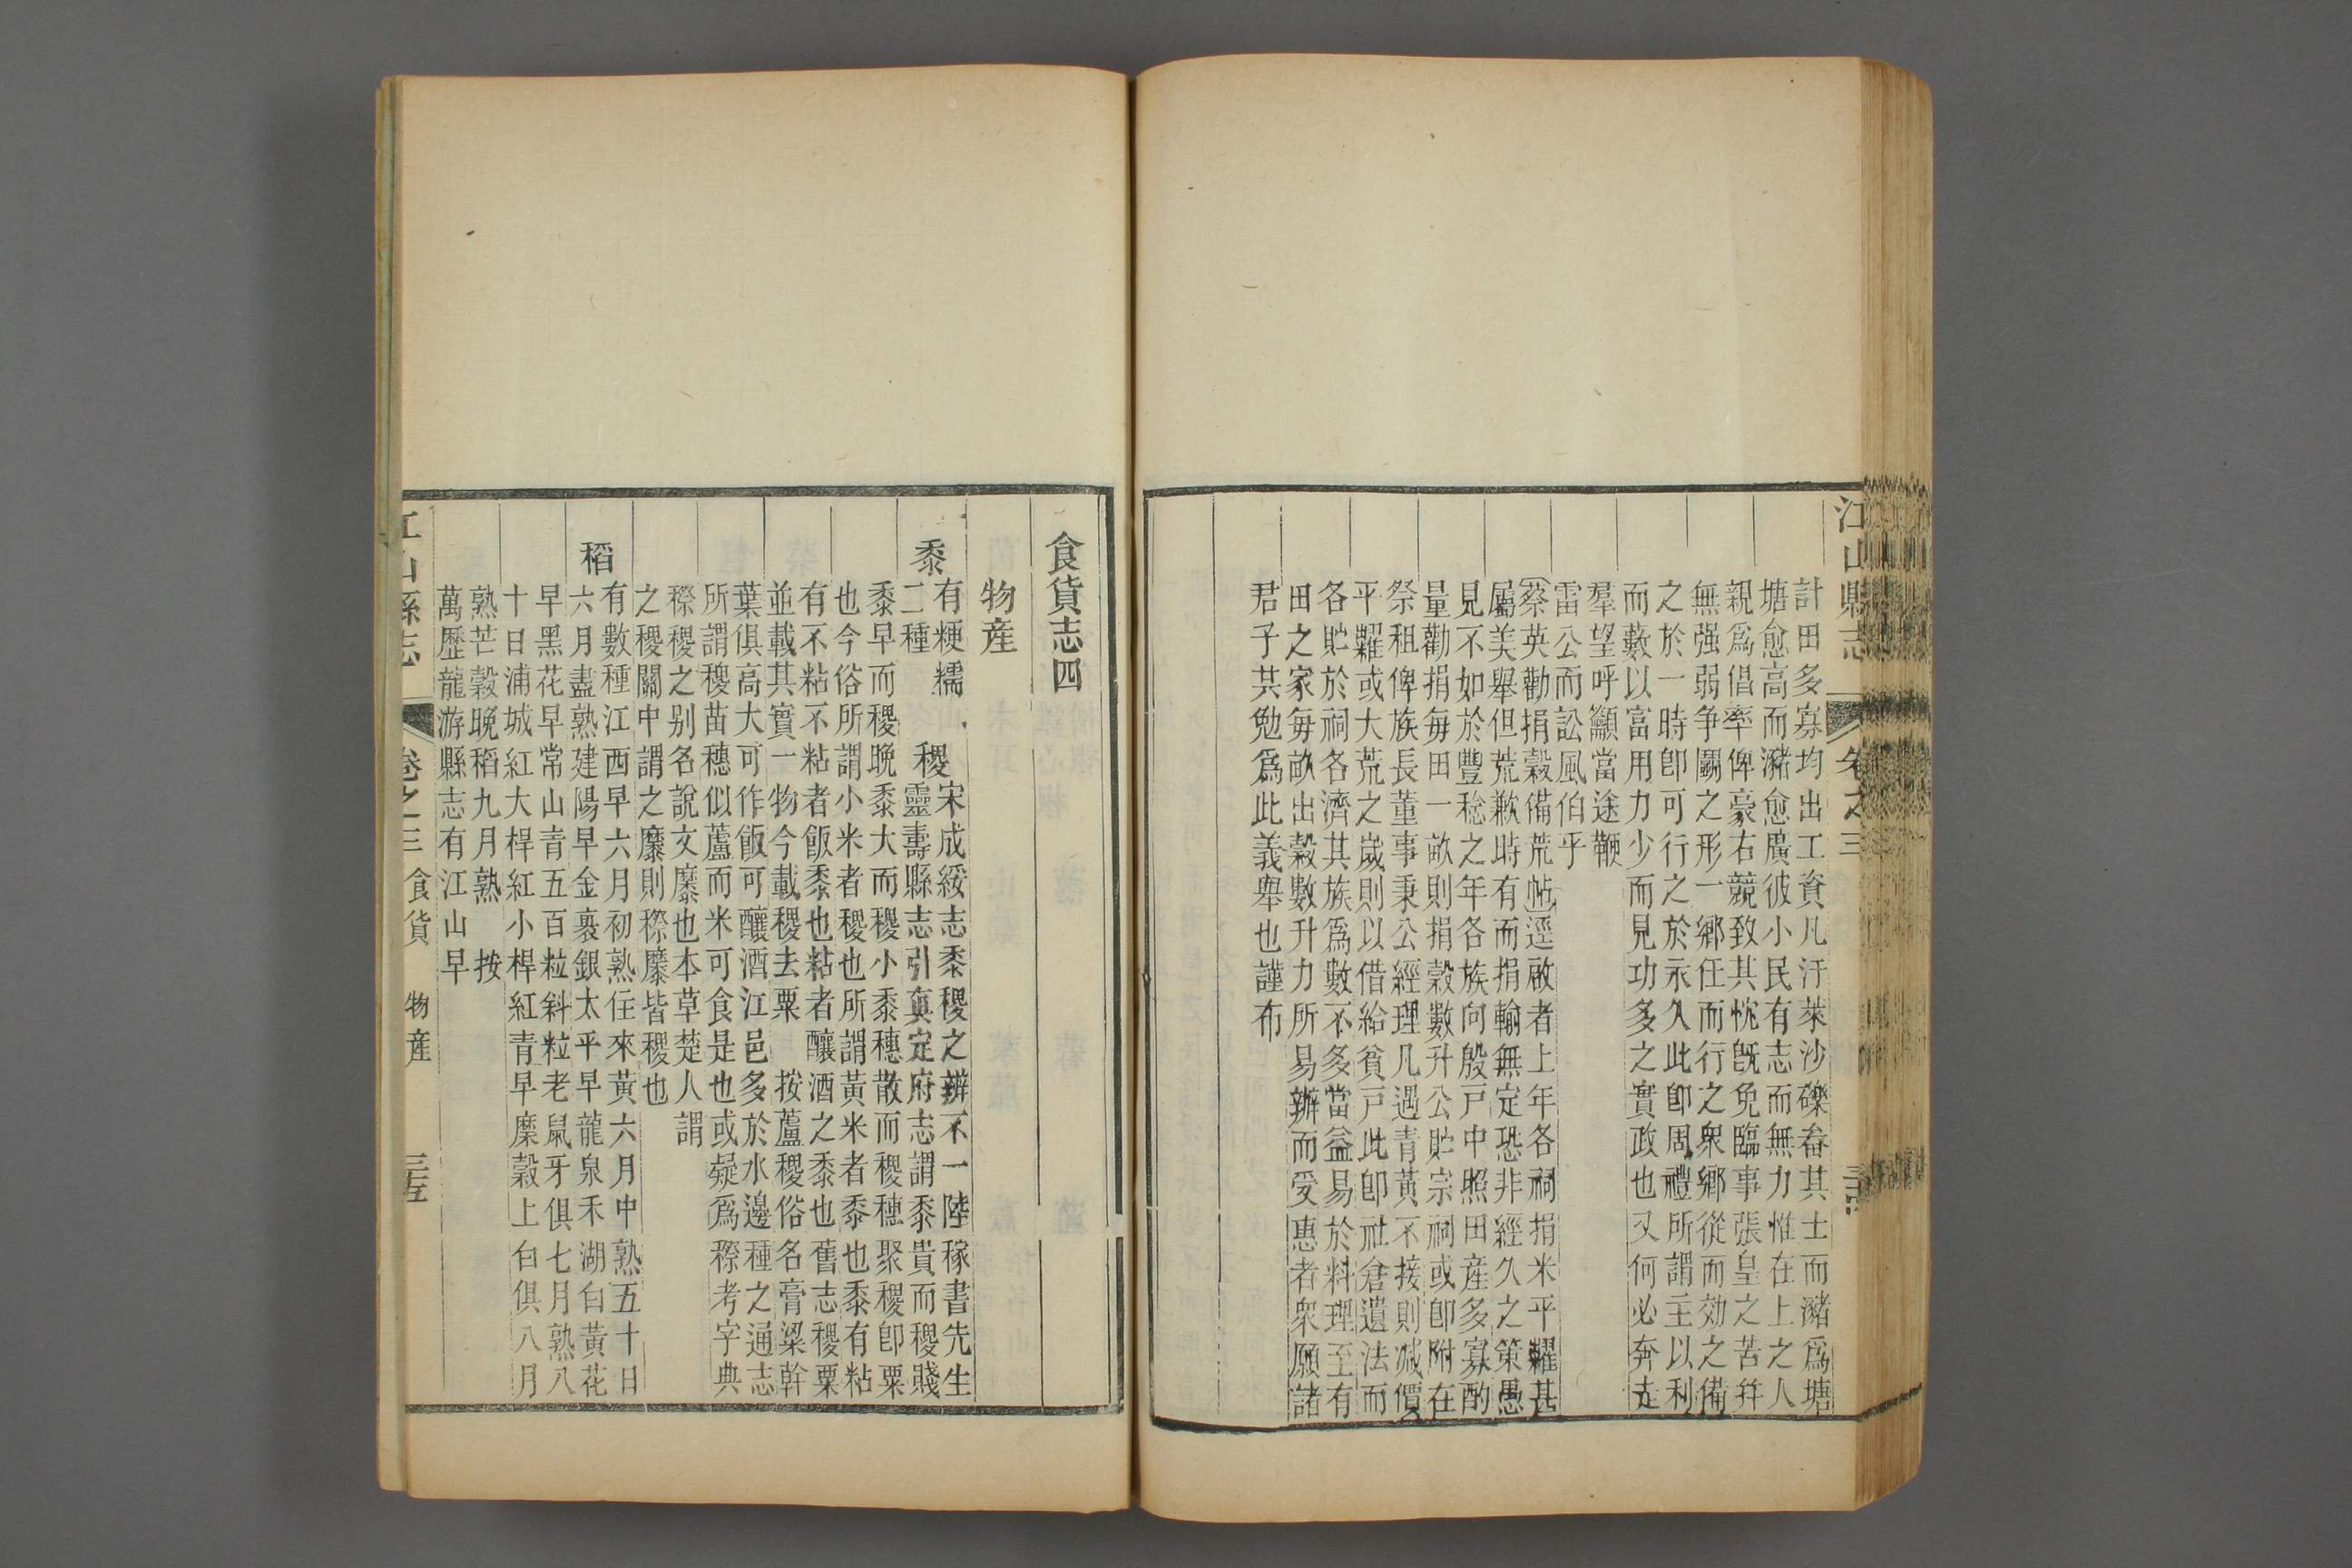 江山縣志
卷之三
計田多寡均出工資凡汙萊沙礫畚其土而瀦爲塘
塘愈高而瀦愈廣彼小民有志而無力惟在上之人
親爲倡率俾豪右競致其忱旣免臨事張皇之苦幷
無强弱爭鬭之形一鄉任而行之衆鄉從而效之備
之於一時卽可行之於永久此卽周禮所謂主以利
而藪以富用力少而見功多之實政也又何必奔走
羣望呼顲當途鞭
雷公而訟風伯乎
蔡英勸捐穀備荒帖逕啟者上年各祠捐米平糶甚
屬美舉但荒歉時有而捐輸無定恐非經久之策愚
見不如於豐稔之年各族向殷戸中照田産多寡酌
量勸捐每田一畝則捐穀數升公貯宗祠或卽附在
祭租俾族長董事秉公經理凡遇青黃不接則減價
平糶或大荒之歲則以借給貧戸此卽社倉遺法而
各貯於祠各濟其族爲數不多當益易於料理至有
田之家每畝出穀數升力所易辦而受惠者衆願諸
君子共勉爲此義舉也謹布
食貨志四
物産
黍
有粳糯
二種
稷
宋成綏志黍稷之辨不一陸稼書先生
靈壽縣志引眞定府志謂黍貴而稷賤
黍早而稷晚黍大而稷小黍穗散而稷穗聚稷卽粟
也今俗所謂小米者稷也所謂黃米者黍也黍有粘
有不粘不粘者飯黍也粘者釀酒之黍也舊志稷粟
並載其實一物今載稷去粟 按蘆稷俗名膏粱幹
葉俱高大可作飯可釀酒江邑多於水邊種之通志
所謂稷苗穗似蘆而米可食是也或疑爲穄考字典
穄稷之別名說文穈也本草楚人謂
之稷關中謂之穈則穄穈皆稷也
稻
有數種江西早六月初熟任來黃六月中熟五十日
六月盡熟建陽早金裹銀太平早龍泉禾湖白黃花
早黑花早常山青五百粒斜粒老鼠牙俱七月熟八
十日浦城紅大桿紅小桿紅青早穈穀上白俱八月
熟芒穀晚稻九月熟 按
萬歷龍游縣志有江山早
江山縣志
卷之三 食貨 物産 三五